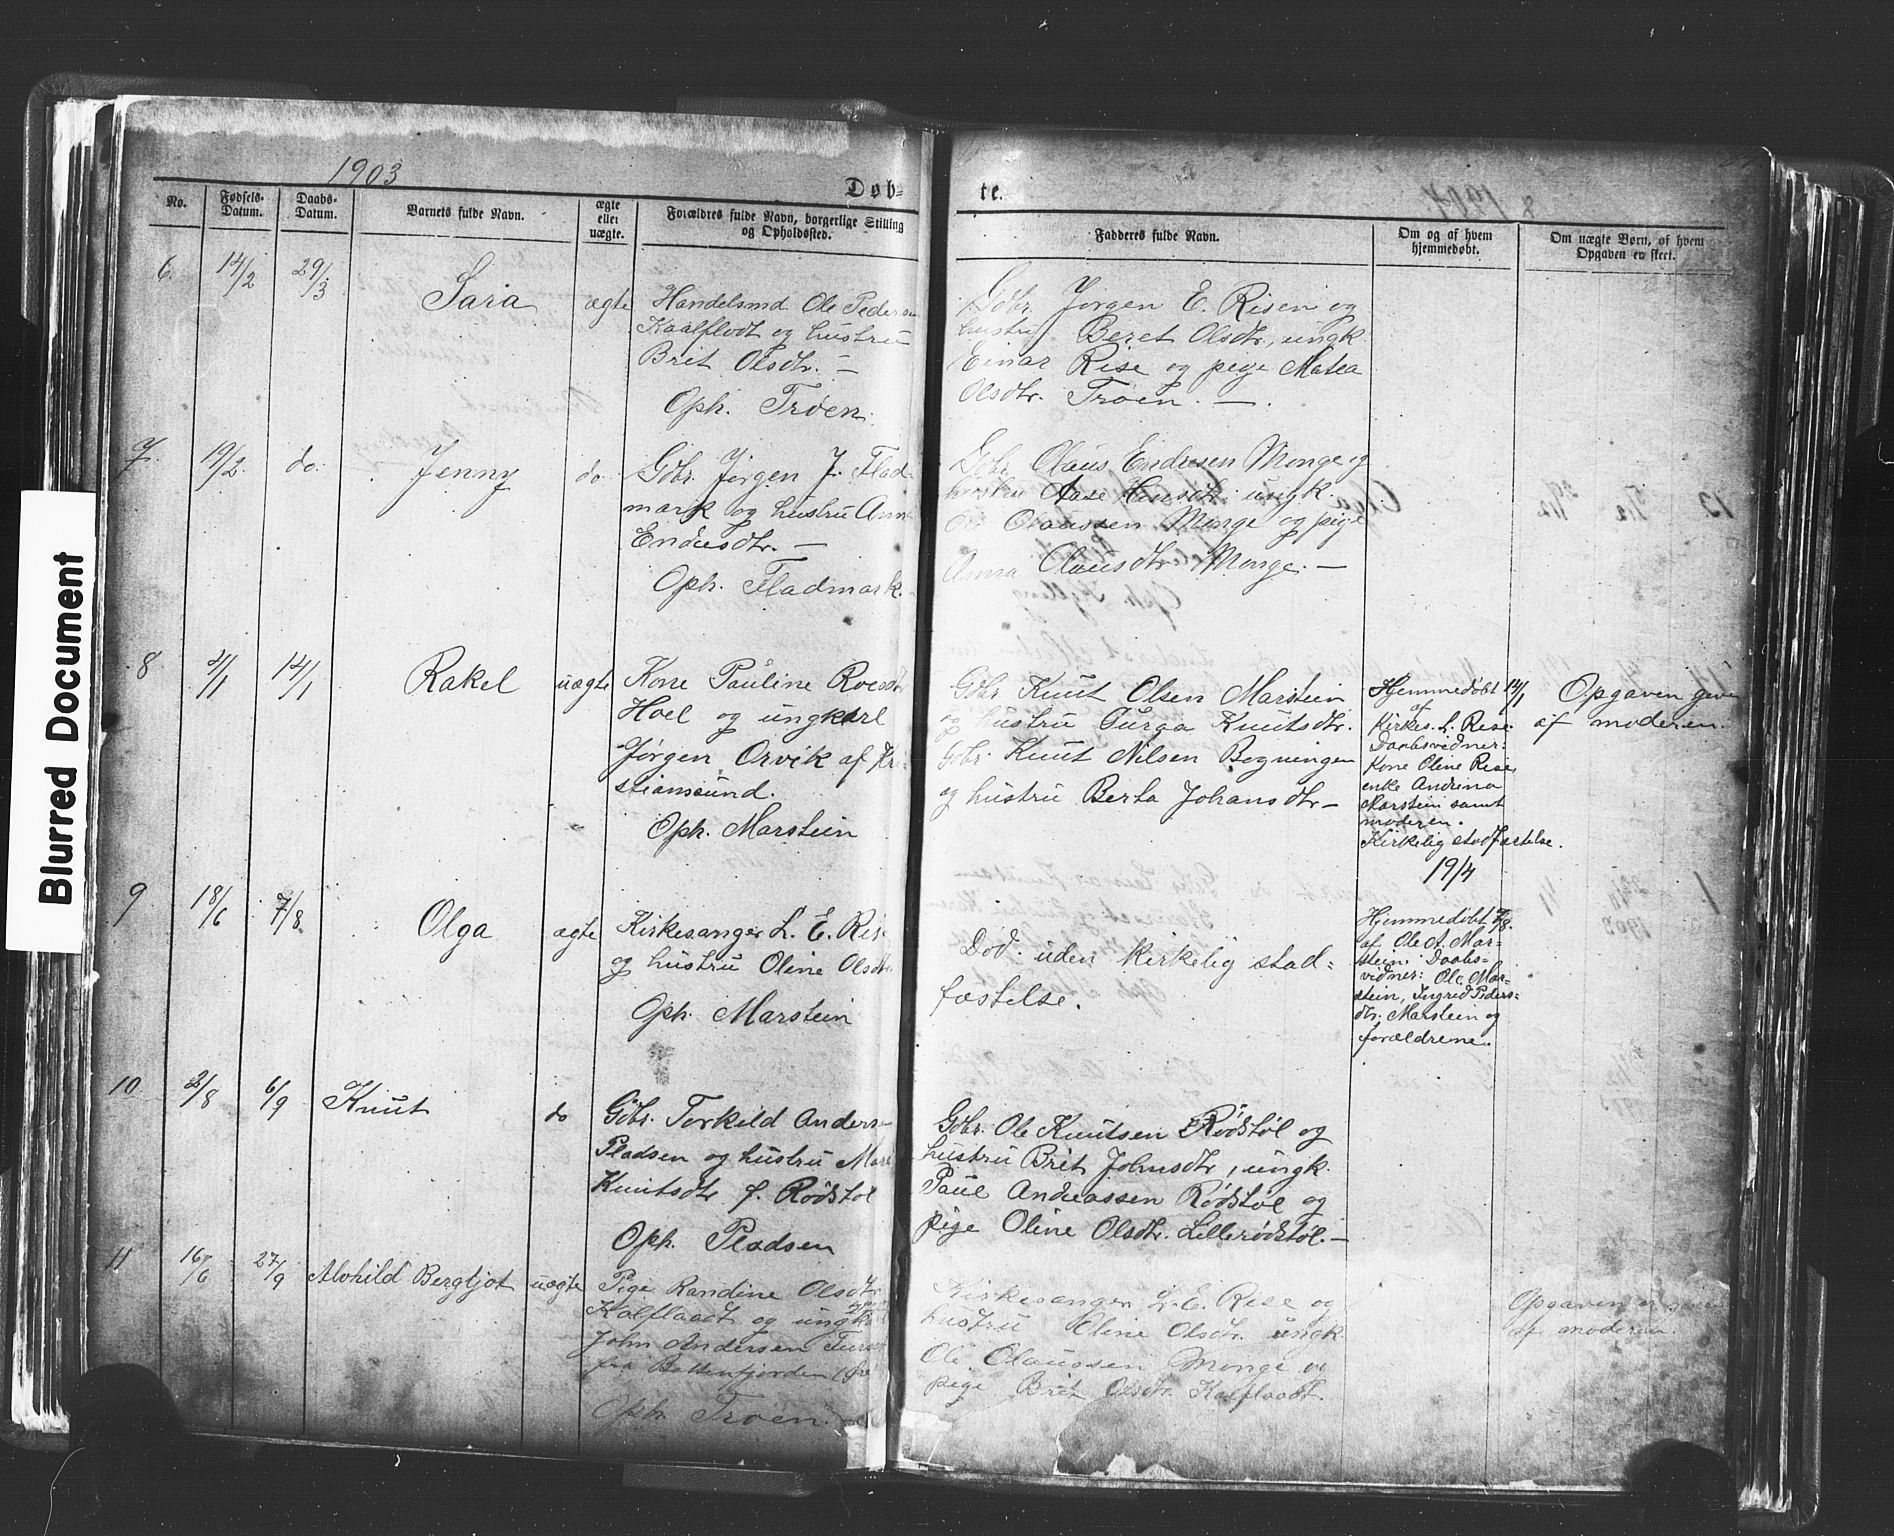 Blurred Document
1903
Døb-
te.
No.
Fødsels-
Datum.
Daabs-
Datum.
Barnets fulde Navn.
ægte
eller
uægte.
Forældres fulde Navn, borgerlige Stilling
og Opholdssted.
Fadderes fulde Navn.
Om og af hvem
hjemmedøbt.
Om uægte Børn, af hvem
Opgaven er skeet.
6. 14/2 29/3 Sara ægte
Handelsmd. Ole Peders
Kaalflodt og hustru
Brit Olsdtr. —
Oph. Trøen.
Gdbr. Jørgen E. Risen og
hustru Beret Olsdtr., ungk.
Einar Rise og pige Matea
Olsdtr. Trøen. —
7. 19/2. do. Jenny do.
Gdbr. Jørgen J. Flad-
mark og hustru Anne
Endresdtr. —
Oph. Fladmark.
Gdbr. Olaus Endresen Monge og
hustru Aase Hansdtr. ungk.
Ole Olaussen Monge og pige
Anna Olausdtr. Monge. —
8 2/1 14/1 Rakel uægte
Kone Pauline Roesdtr
Hoel og ungkarl
Jørgen Orvik af Kri-
stiansund.
Oph. Marstein
Gdbr. Knut Olsen Marstein
og hustru Gurga Knutsdtr.
Gdbr. Knut Nilsen Bogningen
og hustru Berta Johansdtr —
Hjemmedøbt 14/1
af
Kirkes. L. Rise.
Daabsvidner:
Kone Oline Rise,
enke Andrina
Marstein samt
moderen.
Kirkelig stadfæstelse.
19/4
Opgaven given
af moderen.
9 18/6 7/8. Olga ægte
Kirkesanger L. E. Rise
og hustru Oline Olsdtr
Oph. Marstein
Død. uden kirkelig stad-
fæstelse.
Hjemmedøbt 7/8.
af Ole A. Mar-
stein. Daabs-
vidner: Ole Mar-
stein, Ingrid Peders-
dtr. Marstein og
forældrene.
10 2/8 6/9 Knut do
Gdbr. Torkild Anders
Pladsen og hustru Mari
Knutsdtr f. Rødstøl
Oph. Pladsen
Gdbr. Ole Knutsen Rødstøl og
hustru Brit Johnsdtr, ungk.
Paul Andreassen Rødstøl og
pige Oline Olsdtr. Lillerødstøl. —
11 16/6 27/9 Alvhild Bergljot uægte
Pige Randine Olsdtr
Kalflaadt og ungk.
John Andersen
fra Battenfjorden
Oph. Trøen.
Kirkesanger L. E. Rise og
hustru Oline Olsdtr. ungk.
Ole Olaussen Monge og
pige Brit Olsdtr. Kalflaadt.
Opgaven er given
af moderen.